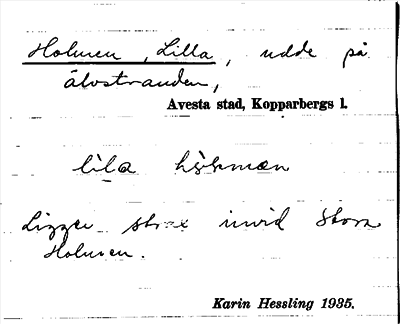 Holmen, Lilla, udde på
älvstranden,
Avesta stad, Kopparbergs l.
lìla
Ligger strax invid Stora
Holmen.
Karin Hessling 1935.